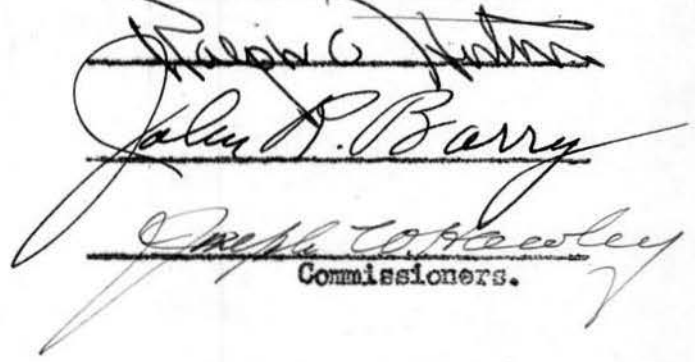 Ralph C. Horton
John R. Barry
Joseph W Hawley
Commissioners.